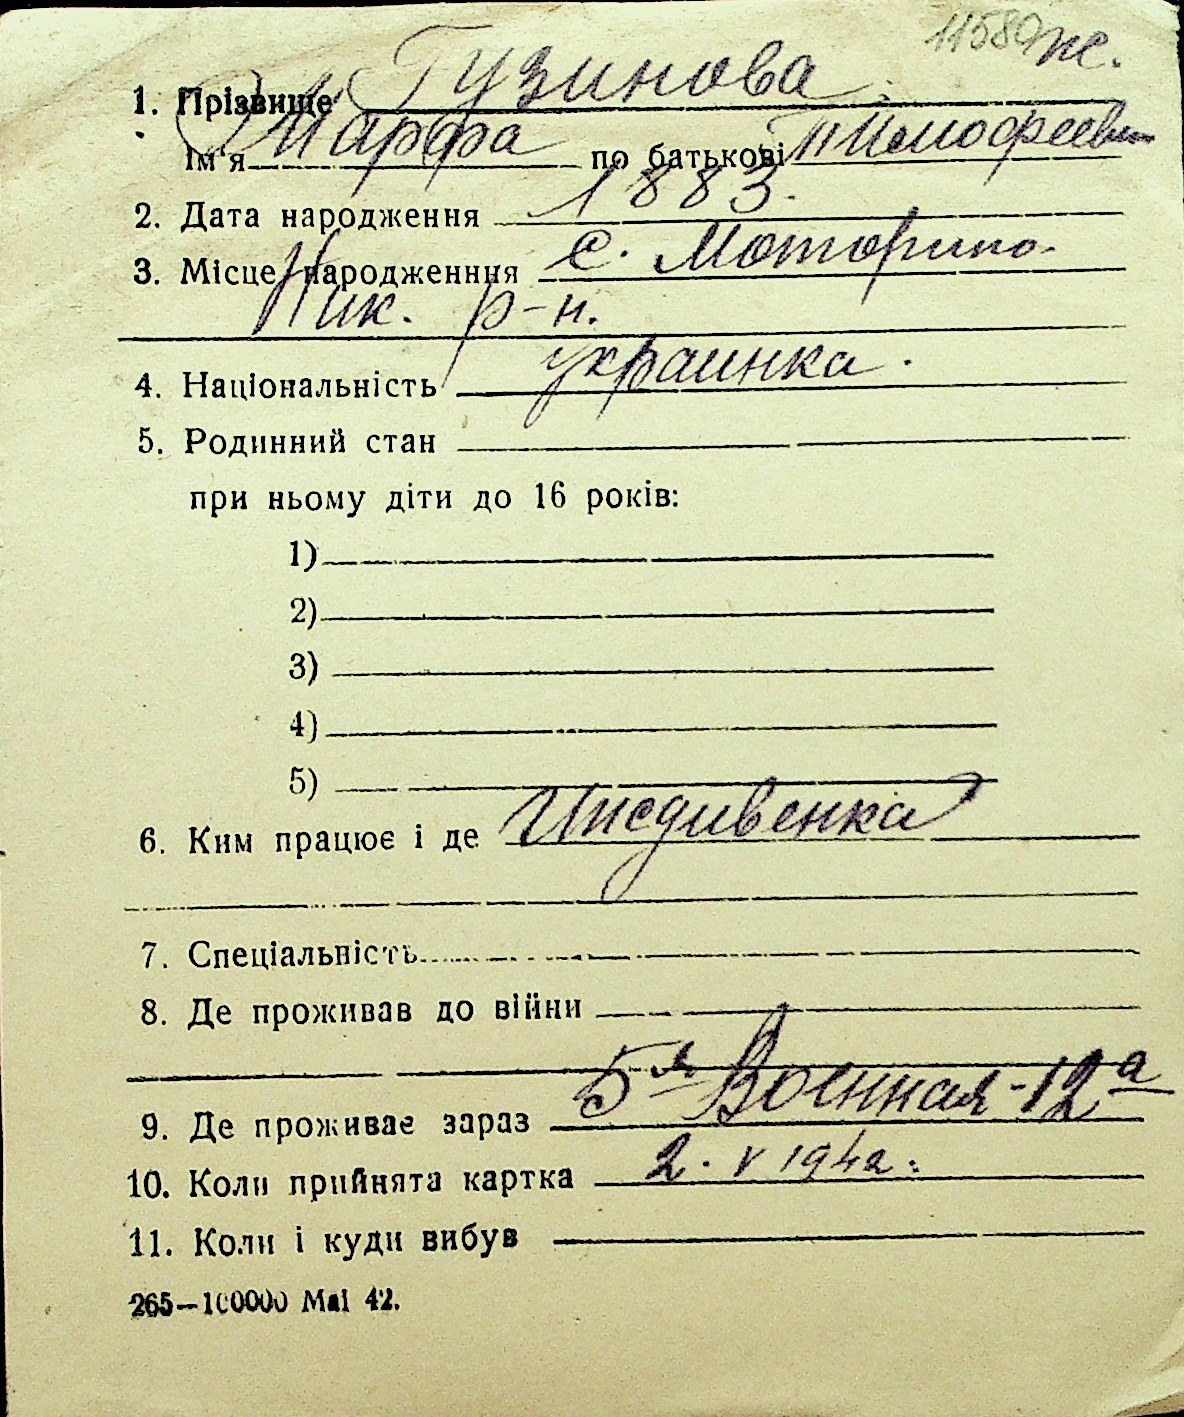 11589 ж.
1. Прізвище Гузинова
Ім'я Марфа по батькові Тимофеевн
2. Дата народження 1883.
3. Місце народженння с. Моторино.
Ник. р-н.
4. Національність украинка.
5. Родинний стан
при ньому діти до 16 років:
1)
2)
3)
4)
5)
6. Ким працює і де Иждивенка
7. Спеціальність
8. Де проживав до війни
9. Де проживає зараз 5я Военная-12а
10. Коли прийнята картка 2. V 1942.
11. Коли і куди вибув
265—100000 Mai 42.